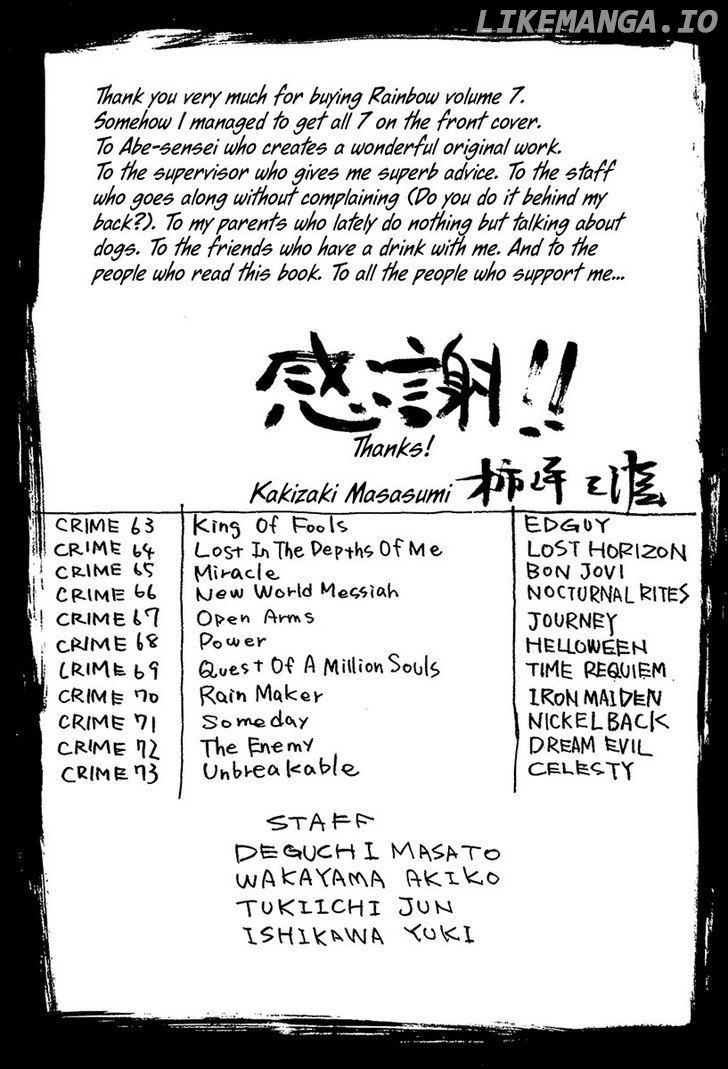 LIKEMANGA.IO
Thank you very much for buying Rainbow volume 7.
Somehow I managed to get all 7 on the front cover.
To Abe-sensei who creates a wonderful original work.
To the supervisor who gives me superb advice. To the staff
who goes along without complaining (Do you do it behind my
back?). To my parents who lately do nothing but talking about
dogs. To the friends who have a drink with me. And to the
people who read this book. To all the people who support me...
感謝!!
Thanks!
Kakizaki Masasumi
CRIME 63 King Of Fools EDGUY
CRIME 64 Lost In The Depths Of Me LOST HORIZON
CRIME 65 Miracle BON JOVI
CRIME 66 New World Messiah NOCTURNAL RITES
CRIME 67 Open Arms JOURNEY
CRIME 68 Power HELLOWEEN
CRIME 69 Quest Of A Million Souls TIME REQUIEM
CRIME 70 Rain Maker IRON MAIDEN
CRIME 71 Someday NICKELBACK
CRIME 72 The Enemy DREAM EVIL
CRIME 73 Unbreakable CELESTY
STAFF
DEGUCHI MASATO
WAKAYAMA AKIKO
TUKIICHI JUN
ISHIKAWA YUKI